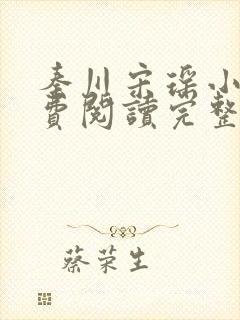 秦川宋瑶小
費閱讀完整
蔡荣生